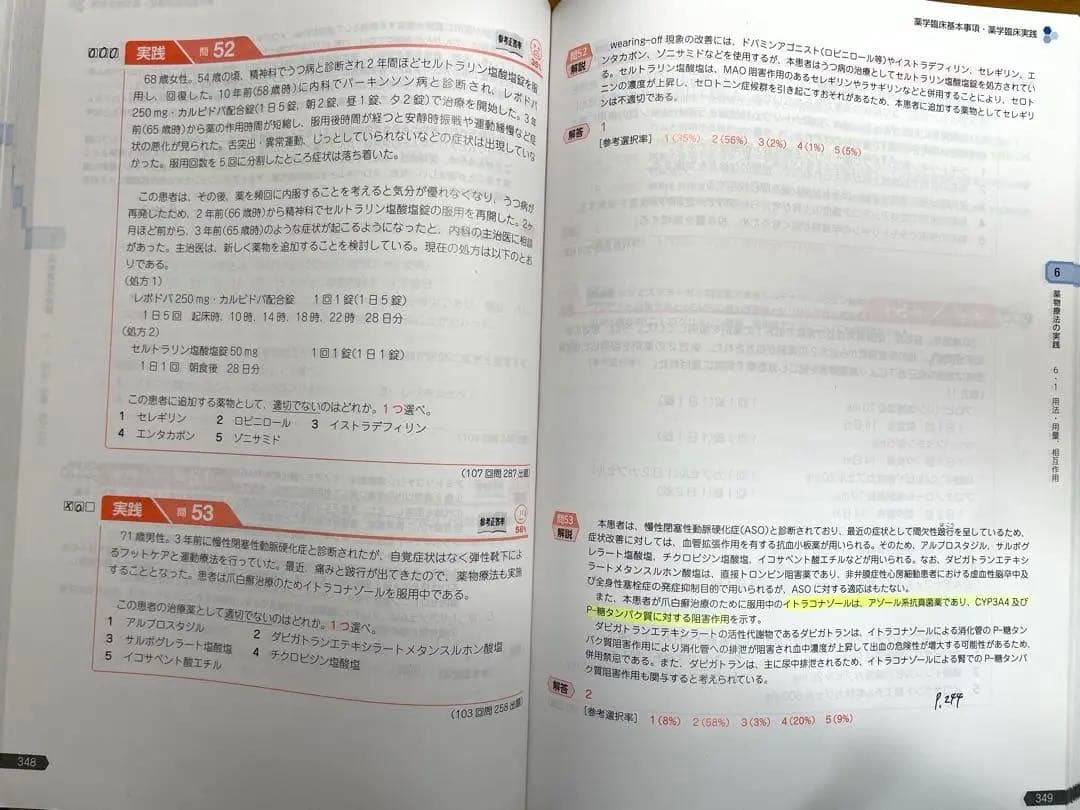 実践 問 52
参考正答率
68歳女性。54歳の頃、精神科でうつ病と診断され2年間ほどセルトラリン塩酸塩錠を服
用し、回復した。10年前(58歳時)に内科でパーキンソン病と診断され、レボドパ
250mg・カルビドパ配合錠(1日5錠、朝2錠、昼1錠、夕2錠)で治療を開始した。3年
前(65歳時)から薬の作用時間が短縮し、服用後時間が経つと安静時振戦や運動緩慢など症
状の悪化が見られた。舌突出・異常運動、じっとしていられないなどの症状は出現していな
かった。服用回数を5回に分割したところ症状は落ち着いた。
この患者は、その後、薬を頻回に内服することを考えると気分が優れなくなり、うつ病が
再発したため、2年前(66歳時)から精神科でセルトラリン塩酸塩錠の服用を再開した。2ヶ
月ほど前から、3年前(65歳時)のような症状が起こるようになったと、内科の主治医に相談
があった。主治医は、新しく薬物を追加することを検討している。現在の処方は以下のとお
りである。
(処方1)
レボドパ250mg・カルビドパ配合錠 1回1錠(1日5錠)
1日5回 起床時、10時、14時、18時、22時 28日分
(処方2)
セルトラリン塩酸塩錠50mg 1回1錠(1日1錠)
1日1回 朝食後 28日分
この患者に追加する薬物として、適切でないのはどれか。1つ選べ。
1 セレギリン 2 ロピニロール 3 イストラデフィリン
4 エンタカポン 5 ゾニサミド
(107回問287出題)
実践 問 53
参考正答率
58%
71歳男性。3年前に慢性閉塞性動脈硬化症と診断されたが、自覚症状はなく弾性靴下によ
るフットケアと運動療法を行っていた。最近、痛みと跛行が出てきたので、薬物療法も実施
することとなった。患者は爪白癬治療のためイトラコナゾールを服用中である。
この患者の治療薬として適切でないのはどれか。1つ選べ。
1 アルプロスタジル 2 ダビガトランエテキシラートメタンスルホン酸塩
3 サルポグレラート塩酸塩 4 チクロピジン塩酸塩
5 イコサペント酸エチル
(103回問258出題)
348
薬学臨床基本事項・薬学臨床実践
問52
解説
wearing-off現象の改善には、ドパミンアゴニスト(ロピニロール等)やイストラデフィリン、セレギリン、エ
ンタカポン、ゾニサミドなどを使用するが、本患者はうつ病の治療としてセルトラリン塩酸塩錠を処方されてい
る。セルトラリン塩酸塩は、MAO阻害作用のあるセレギリンやラサギリンなどと併用することにより、セロト
ニンの濃度が上昇し、セロトニン症候群を引き起こすおそれがあるため、本患者に追加する薬物としてセレギリ
ンは不適切である。
解答 1
[参考選択率] 1(35%) 2(56%) 3(2%) 4(1%) 5(5%)
6
薬物療法の実践 6・1 用法・用量、相互作用
問53
解説
本患者は、慢性閉塞性動脈硬化症(ASO)と診断されており、最近の症状として間欠性跛行を呈しているため、
症状改善に対しては、血管拡張作用を有する抗血小板薬が用いられる。そのため、アルプロスタジル、サルポグ
レラート塩酸塩、チクロピジン塩酸塩、イコサペント酸エチルなどが用いられる。なお、ダビガトランエテキシ
ラートメタンスルホン酸塩は、直接トロンビン阻害薬であり、非弁膜症性心房細動患者における虚血性脳卒中及
び全身性塞栓症の発症抑制目的で用いられるが、ASOに対する適応はもたない。
また、本患者が爪白癬治療のために服用中のイトラコナゾールは、アゾール系抗真菌薬であり、CYP3A4及び
P-糖タンパク質に対する阻害作用を示す。
ダビガトランエテキシラートの活性代謝物であるダビガトランは、イトラコナゾールによる消化管のP-糖タン
パク質阻害作用により消化管への排泄が阻害され血中濃度が上昇して出血の危険性が増大する可能性があるため、
併用禁忌である。また、ダビガトランは、主に尿中排泄されるため、イトラコナゾールによる腎でのP-糖タンパ
ク質阻害作用も関与すると考えられている。
解答 2
P.244
[参考選択率] 1(8%) 2(58%) 3(3%) 4(20%) 5(9%)
349